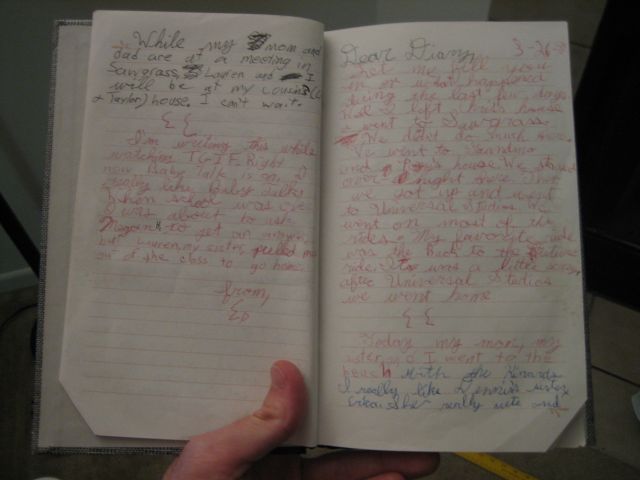 While my mom and
dad are at a meeting in
Sawgrass, Lauren and I
will be at my cousins
& Taylor) house. I can't wait.
{ {
I'm writing this while
watching TGIF. Right
now Baby Talk is on. I
really like Baby Talk.
When school was over
I was about to ask
Megan to get an
but Lauren, my sister, pulled me
out of the class to go home.
from,
Ed
Dear Diary, 3-26
Let me fill you
in on what happened
during the last few days.
house
I went to Sawgrass.
We didn't do much there.
We went to Sandra
and house. We stayed
over night there. Then
we got up and went
to Universal Studios. We
went on most of the
rides. My favorite ride
was the Back to the Future
ride. It was a little scary.
after Universal Studios
we went home
{ {
Today my mom, my
sister, and I went to the
beach with the
I really like Dennis's sister,
because her really cute and